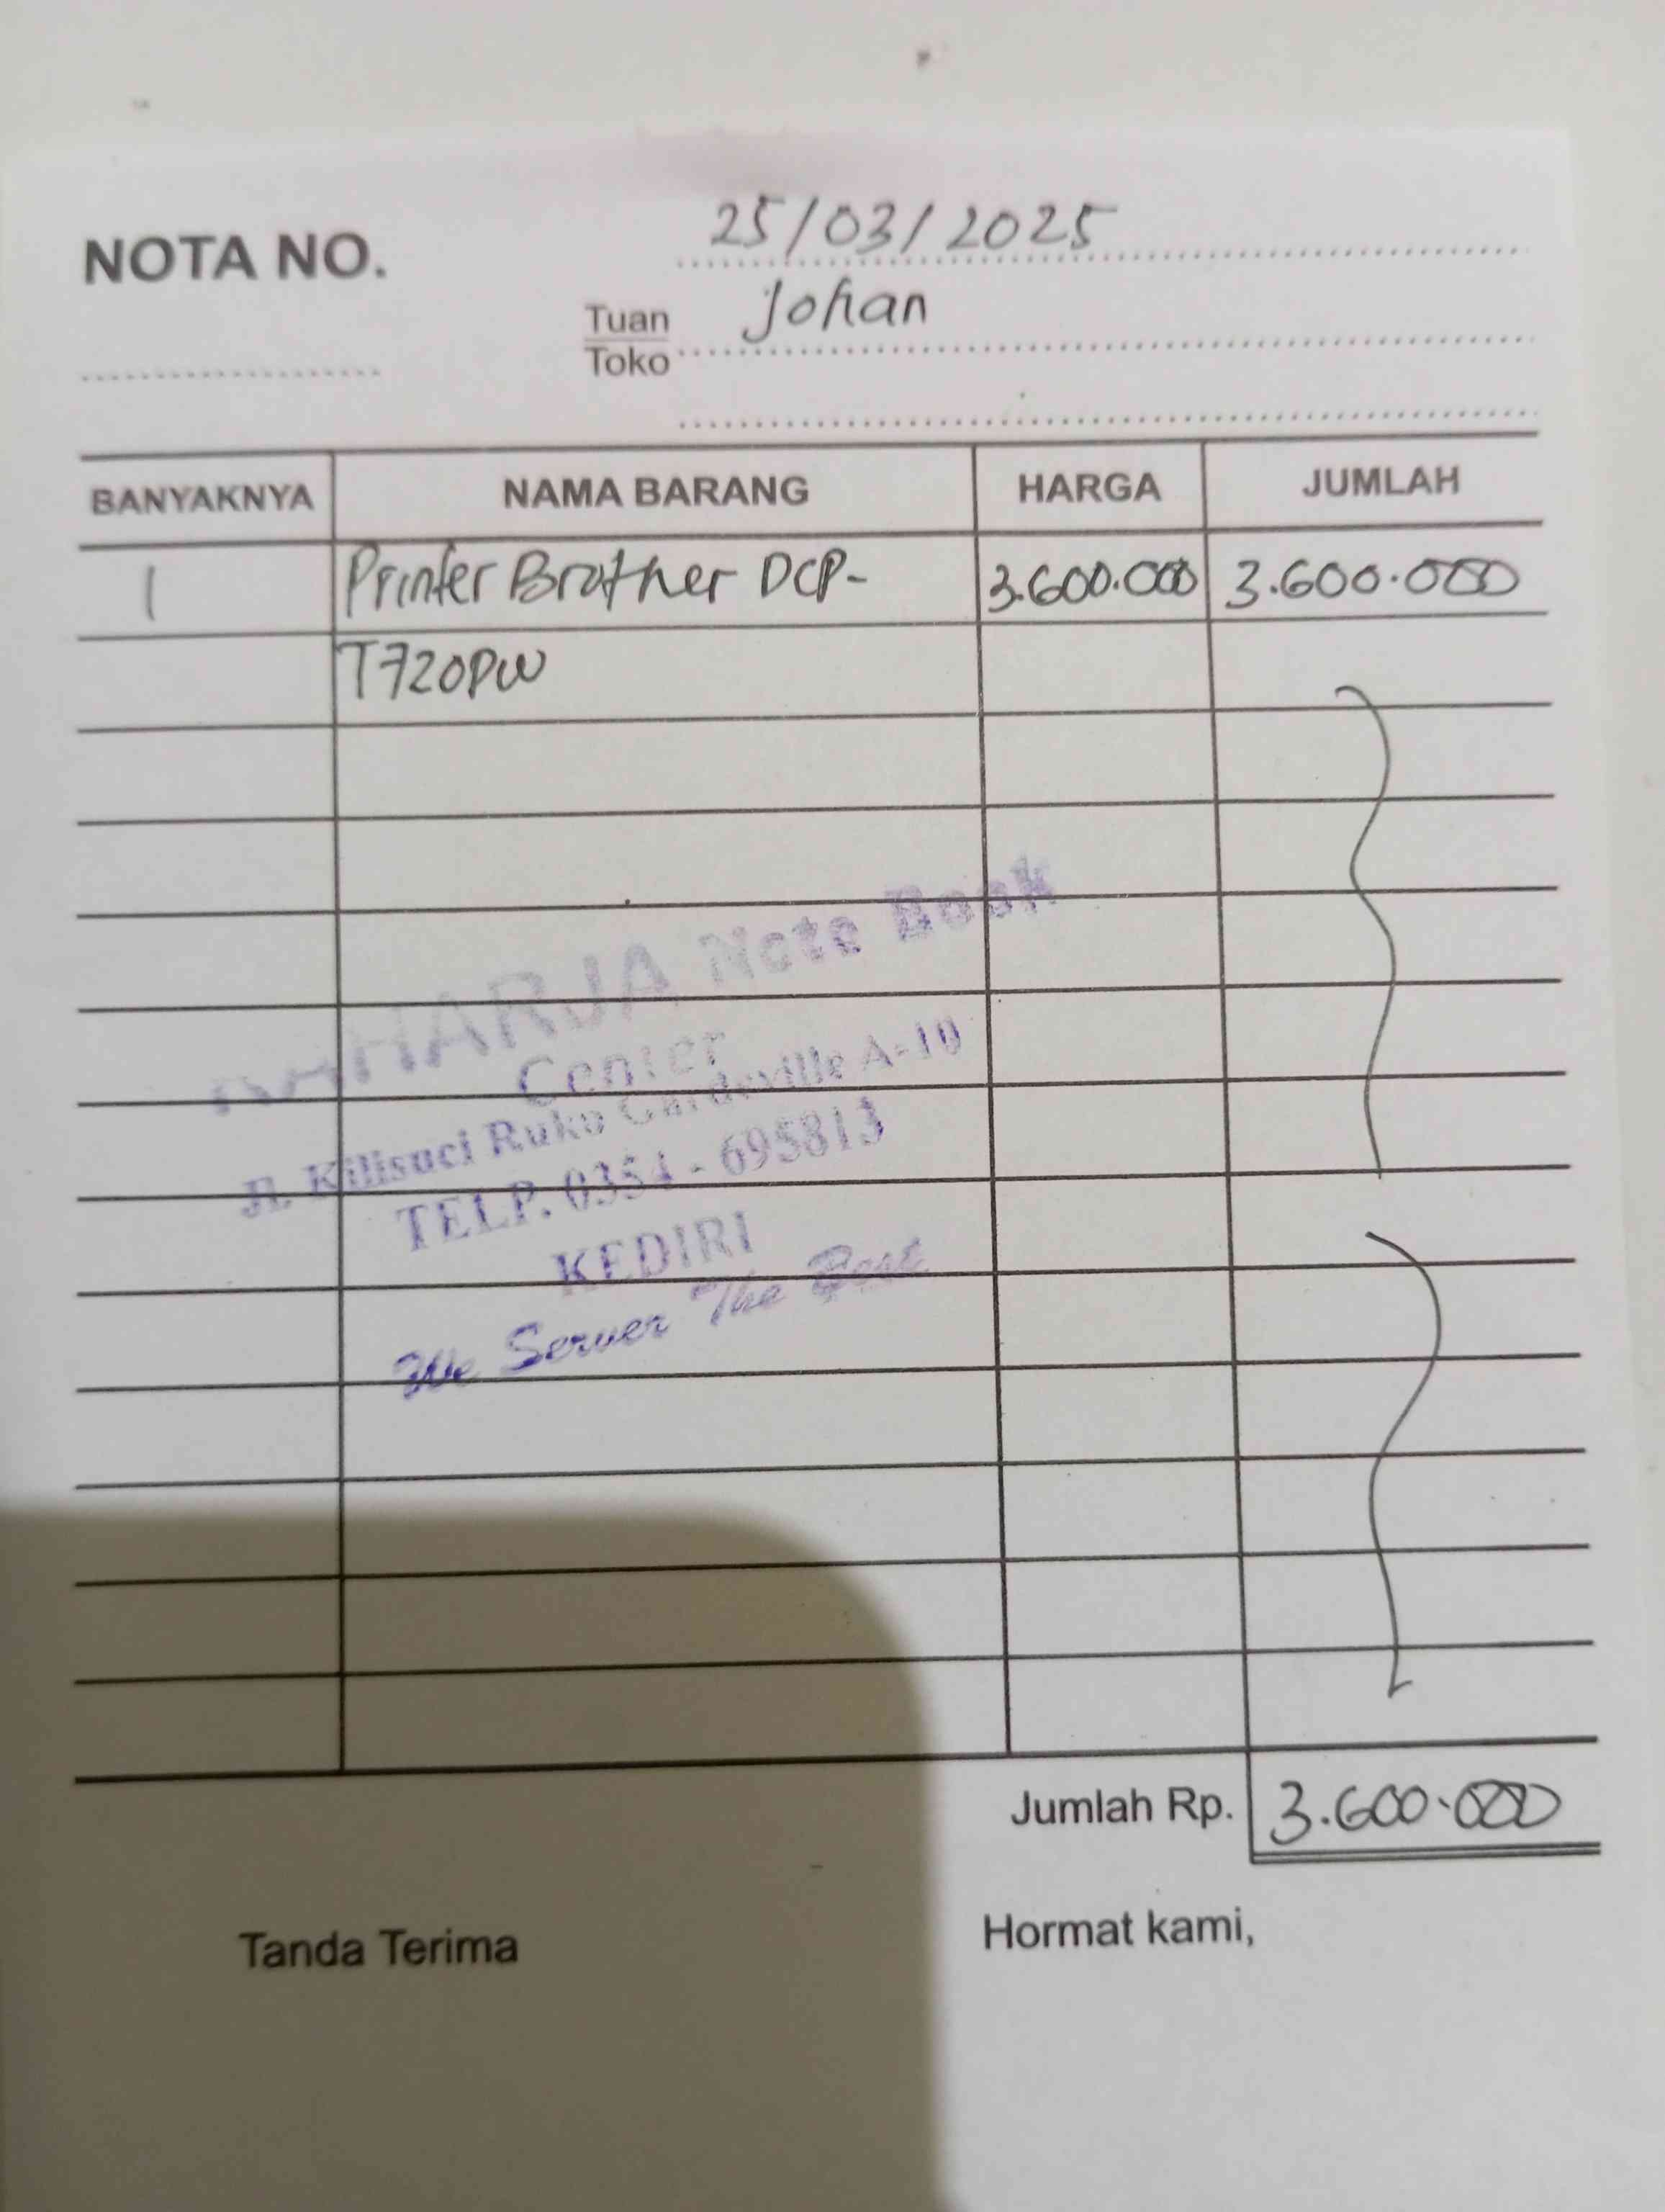 25/03/2025
NOTA NO.
Tuan Johan
Toko
BANYAKNYA NAMA BARANG HARGA JUMLAH
1 Printer Brother DCP- 3.600.000 3.600.000
T720PW
HARJA Note Book
Center
Jl. Killisuci Ruko Gardeville A-10
TELP. 0354 - 695813
KEDIRI
We Server The Best
Jumlah Rp. 3.600.000
Tanda Terima Hormat kami,